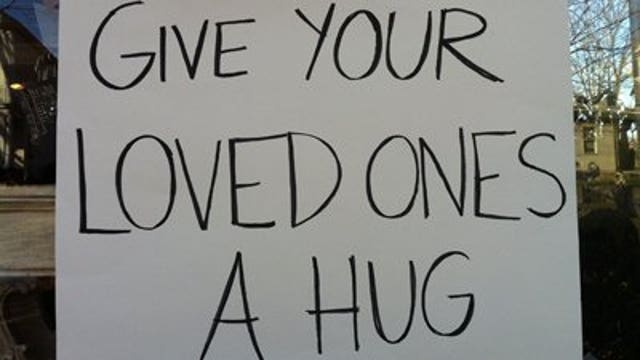 GIVE YOUR
LOVED ONES
A HUG